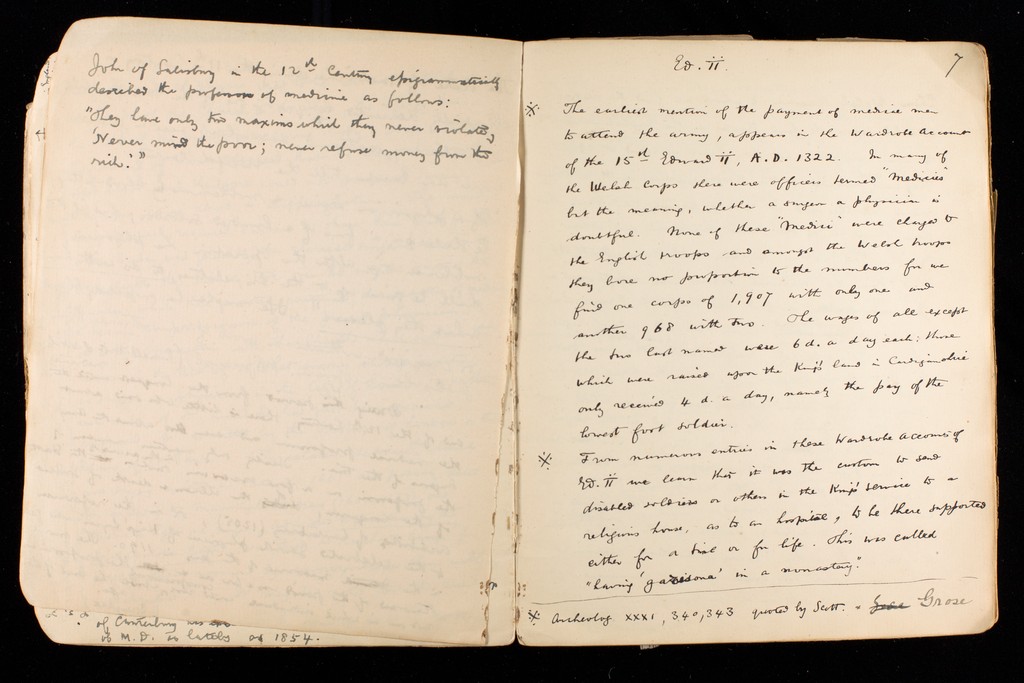 John of Salisbury in the 12th Century epigrammatically
described the professors of medicine as follows:
"They have only two maxims which they never violate,
'Never mind the poor; never refuse money from the
rich.'"
of Canterbury
M.D. as lately as 1854.
7
Ed. II.
※ The earliest mention of the payment of medical men
to attend the army, appears in the Wardrobe Accounts
of the 15th Edward II, A.D. 1322. In many of
the Welsh Corps there were officers termed "Medicus"
but the meaning, whether a surgeon or physician is
doubtful. None of these "Medici" were charged to
the English troops and amongst the Welsh troops
they bore no proportion to the numbers for we
find one corps of 1,907 with only one and
another 968 with two. The wages of all except
the two last named were 6d. a day each: those
which were raised upon the King's land in Cardiganshire
only received 4 d. a day, namely the pay of the
lowest foot soldier.
※ From numerous entries in these Wardrobe Accounts of
Ed. II we learn that it was the custom to send
disabled soldiers or others in the King's service to a
religious house, as to an hospital, to be there supported
either for a time or for life. This was called
"having 'garisona' in a monastery."
※ Archeolog XXXI, 340,343 quoted by Scott. & Grose